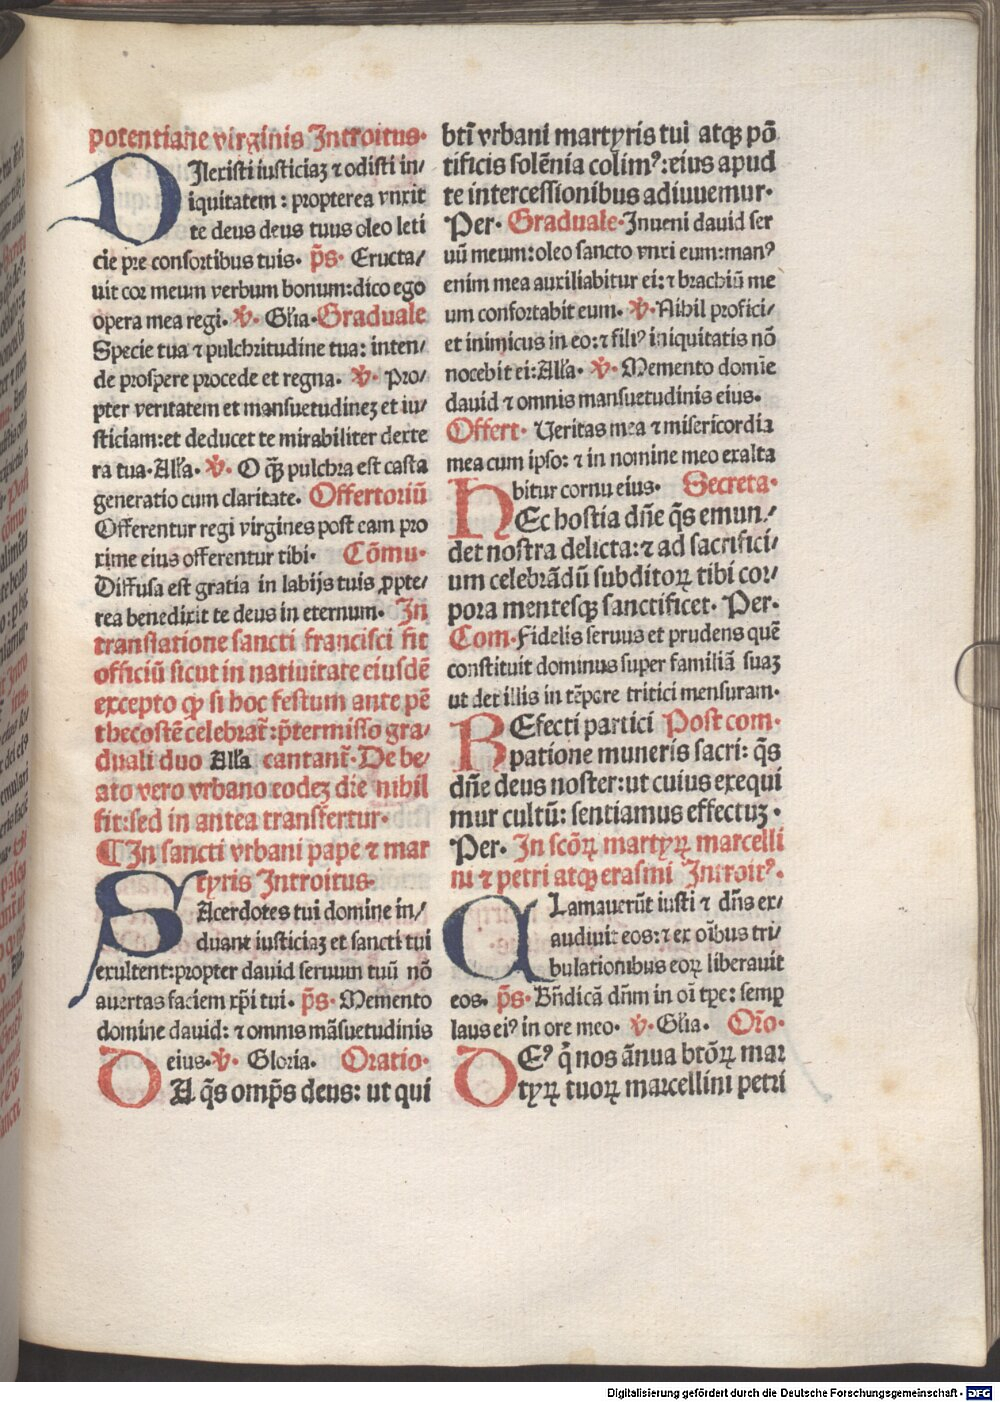 potentiane virginis Introitus·
DIlexisti iusticiaʒ ⁊ odisti in/
iquitatem : propterea vnxit
te deus deus tuus oleo leti
cie pre consortibus tuis· p̄s· Eructa/
uit cor meum verbum bonum:dico ego
opera mea regi· ℣· Gl̄ia·Graduale
Specie tua ⁊ pulchritudine tua: inten/
de prospere procede et regna· ℣· Pro/
pter veritatem et mansuetudineʒ et iu/
sticiam:et deducet te mirabiliter dexte
ra tua·All̄a· ℣· O q̄ꝫ pulchra est casta
generatio cum claritate· Offertoriū
Offerentur regi virgines post eam pro
xime eius offerentur tibi· Cōmu·
Diffusa est gratia in labijs tuis ꝓpte/
rea benedixit te deus in eternum· In
translatione sancti francisci fit
officiū sicut in natiuitate eiusdē
excepto ꝙ si hoc festum ante pē
thecostē celebrat᷑:p̄termisso gra/
duali duo All̄a cantant᷑·De be/
ato vero vrbano eodeʒ die nihil
fit:sed in antea transfertur·
¶In sancti vrbani pape ⁊ mar
tyris Introitus·
SAcerdotes tui domine in/
duant iusticiaʒ et sancti tui
exultent:propter dauid seruum tuū nō
auertas faciem xp̄i tui· p̄s· Memento
domine dauid: ⁊ omnis māsuetudinis
eius·℣· Gloria. Oratio·
DA q̄s omp̄s deus: ut qui
bt̄i vrbani martyris tui atqꝫ pō
tificis solēnia colimꝰ:eius apud
te intercessionibus adiuuemur·
Per· Graduale·Inueni dauid ser
uū meum:oleo sancto vnxi eum:manꝰ
enim mea auxiliabitur ei:⁊ brachiū me
um confortabit eum. ℣·Nihil profici/
et inimicus in eo:⁊ filiꝰ iniquitatis nō
nocebit ei:All̄a· ℣· Memento domīe
dauid ⁊ omnis mansuetudinis eius.
Offert· Veritas mea ⁊ misericordia
mea cum ipso: ⁊ in nomine meo exalta
bitur cornu eius· Secreta·
HEc hostia dn̄e q̄s emun/
det nostra delicta:⁊ ad sacrifici/
um celebrādū subditoꝝ tibi cor/
pora mentesqꝫ sanctificet· Per·
Com·Fidelis seruus et prudens quē
constituit dominus super familiā suaʒ
ut det illis in tēpore tritici mensuram·
REfecti partici Post com·
patione muneris sacri: q̄s
dn̄e deus noster:ut cuius exequi
mur cultū: sentiamus effectuʒ ·
Per· In scōꝝ martyꝝ marcelli
ni ⁊ petri atqꝫ erasmi Introitꝰ·
CLamauerūt iusti ⁊ dn̄s ex/
audiuit eos:⁊ ex oībus tri/
bulationibus eoꝝ liberauit
eos· p̄s· Bn̄dicā dn̄m in oī tp̄e: semꝑ
laus eiꝰ in ore meo· ℣· Gl̄ia· Or̄o·
DEꝰ q̄ nos ānua btōꝝ mar
tyꝝ tuoꝝ marcellini petri
Digitalisierung gefördert durch die Deutsche Forschungsgemeinschaft - DFG